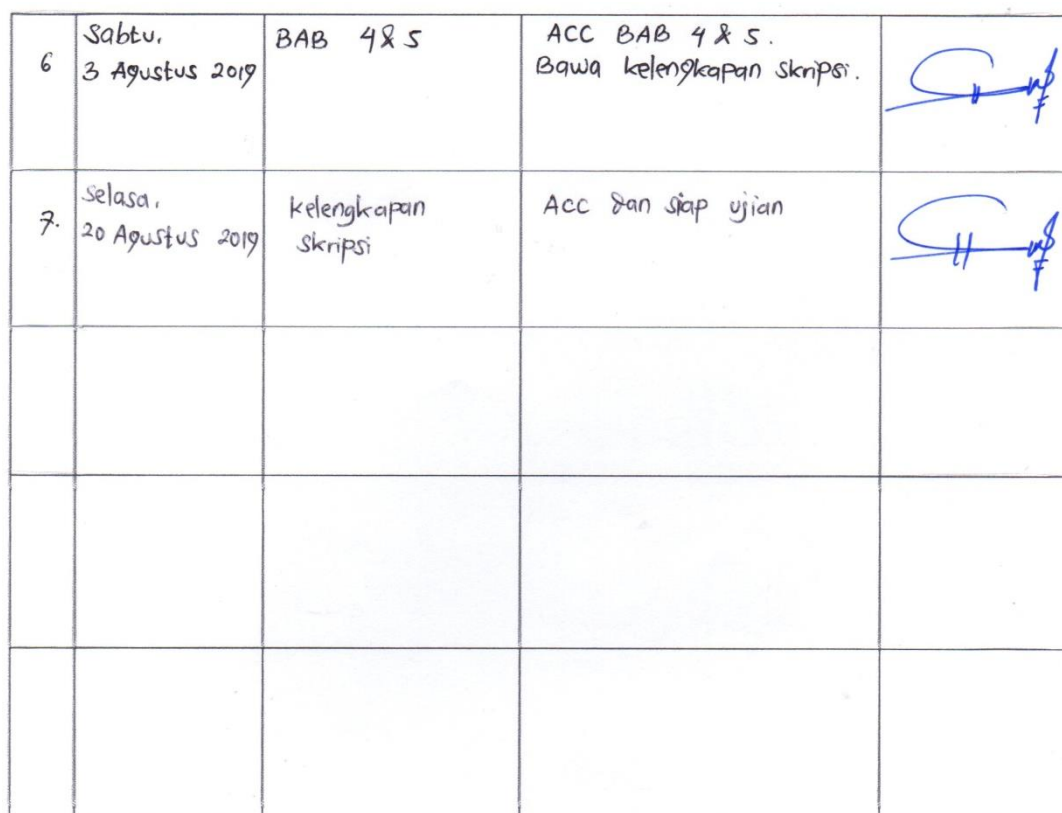 6
Sabtu,
3 Agustus 2019
BAB 4 & 5
ACC BAB 4 & 5.
Bawa kelengkapan skripsi.
7.
Selasa,
20 Agustus 2019
kelengkapan
skripsi
ACC dan siap ujian